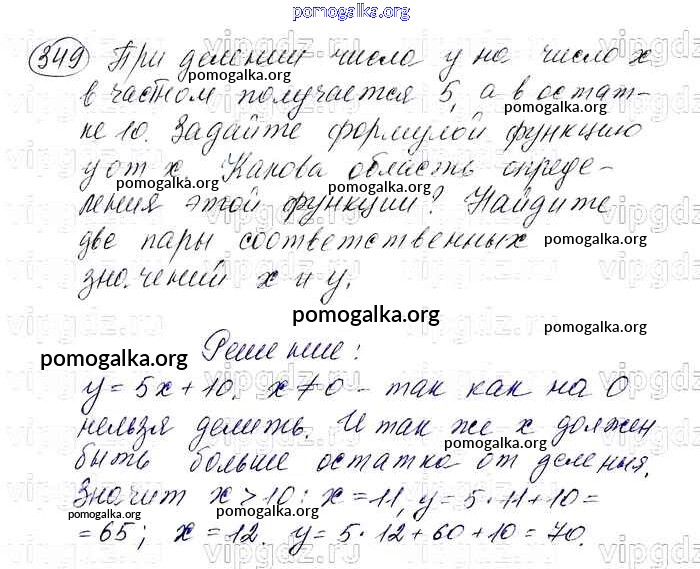 pomogalka.org
349 При делении числа у на число х
pomogalka.org
в частном получается 5, а в остат-
ке 10. Задайте формулой функцию
у от х. Какова область опреде-
pomogalka.org
pomogalka.org
ления этой функции? Найдите
две пары соответственных
pomogalka.org
значений х и у.
pomogalka.org
pomogalka.org
Решение:
pomogalka.org
y = 5x + 10, x ≠ 0 - так как на 0
нельзя делить. И так же х должен
pomogalka.org
быть больше остатка от деления.
Значит x > 10: x = 11, y = 5·11+10 =
pomogalka.org
= 65; x = 12. y = 5·12+60+10=70.
pomogalka.org
vipgdz.ru